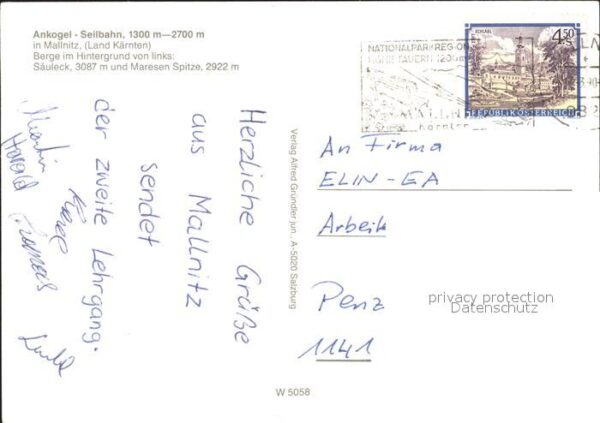 Ankogel - Seilbahn, 1300 m—2700 m
in Mallnitz, (Land Kärnten)
Berge im Hintergrund von links:
Säuleck, 3087 m und Maresen Spitze, 2922 m
Herzliche Grüße
aus Mallnitz
sendet
der zweite Lehrgang.
Martin
Harald
Verlag Alfred Gründler jun., A-5020 Salzburg
NATIONALPARKREGION
HOHE TAUERN 1200m
4.50
S
REPUBLIK ÖSTERREICH
An Firma
ELIN-EA
Arbeit
Penz
1141
privacy protection
Datenschutz
W 5058